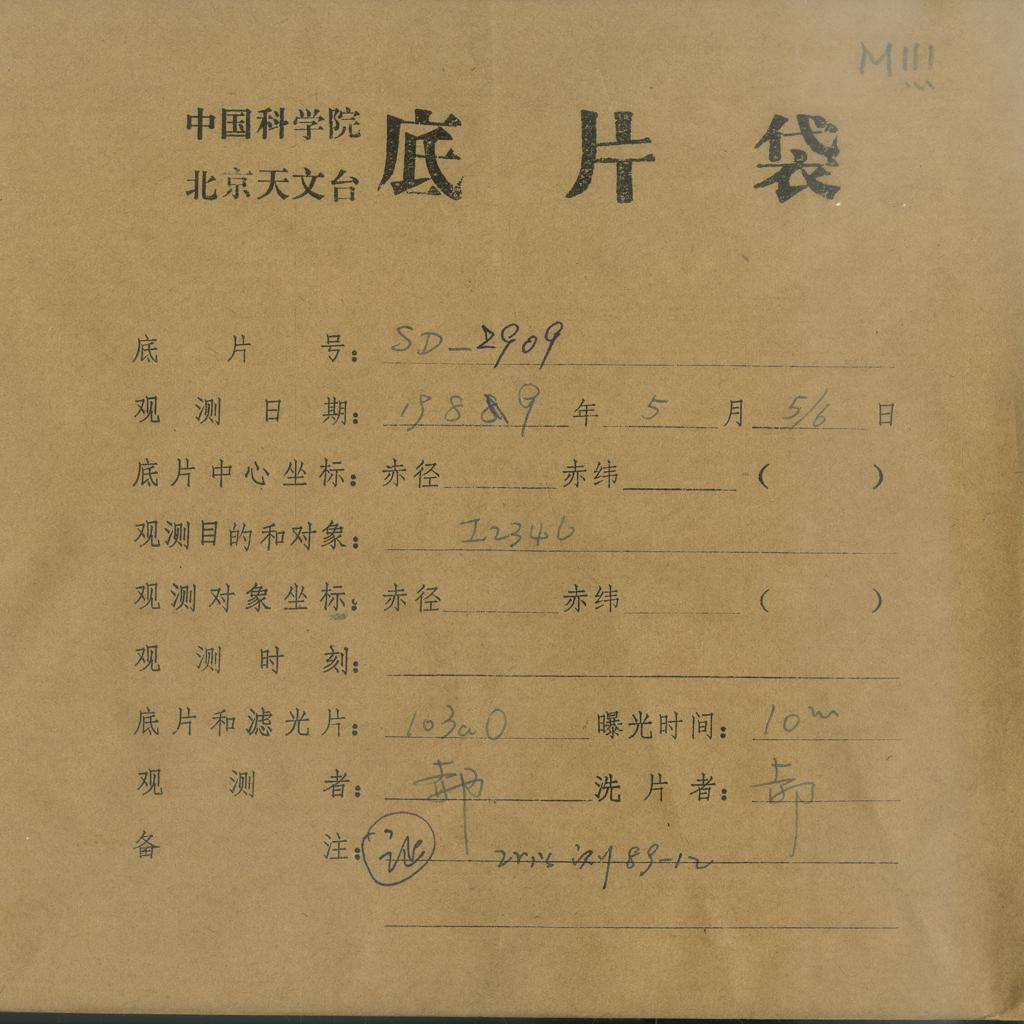 M111
中国科学院
北京天文台
底片袋
底片号：SD-2909
观测日期：1989年5月5/6日
底片中心坐标：赤径 赤纬 （ ）
观测目的和对象：I2346
观测对象坐标：赤径 赤纬 （ ）
观测时刻：
底片和滤光片：103aO 曝光时间：10m
观测者：郝 洗片者：郝
备注：证 测89-12